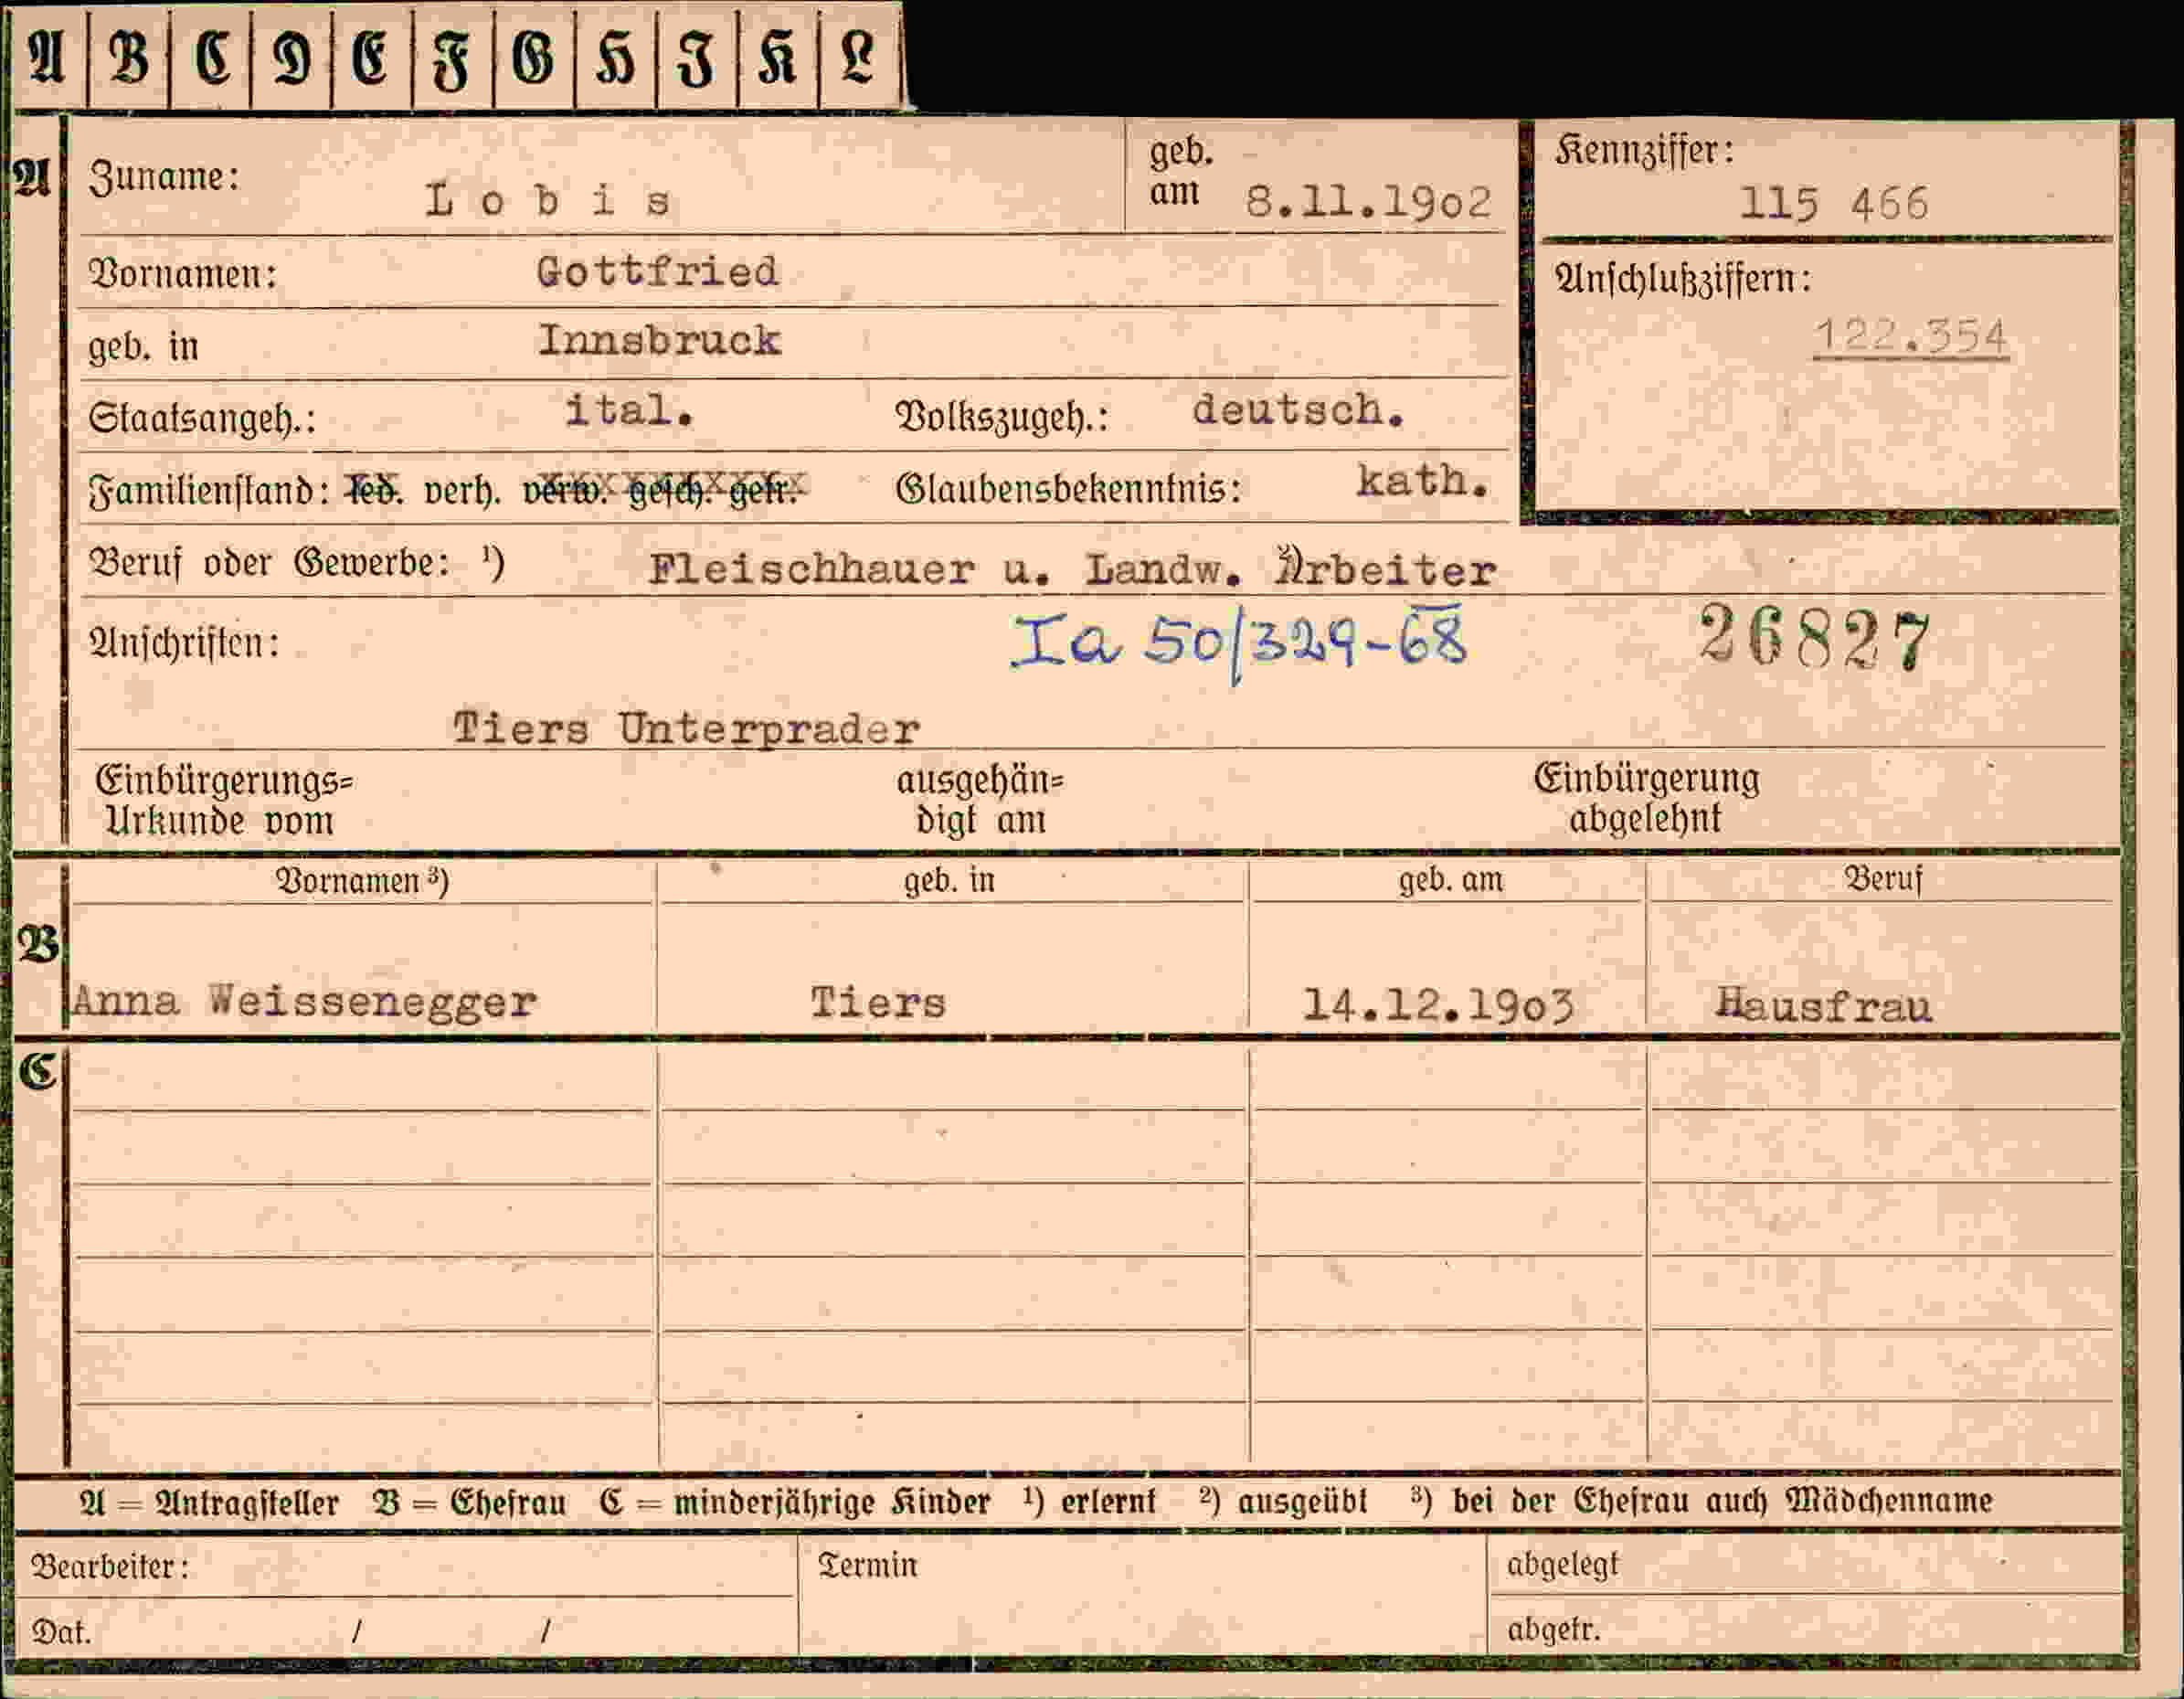 A B C D E F G H I K L
A Zuname: Lobis geb. am 8.11.1902 Kennziffer: 115 466
Vornamen: Gottfried Anschlußziffern:
geb. in Innsbruck 122.354
Staatsangeh.: ital. Volkszugeh.: deutsch.
Familienstand: led. verh. verw. gesch. getr. Glaubensbekenntnis: kath.
Beruf oder Gewerbe: ¹) Fleischhauer u. Landw. ²) Arbeiter
Anschriften: Ia 50/329-68 26827
Tiers Unterprader
Einbürgerungs= ausgehän= Einbürgerung
Urkunde vom digt am abgelehnt
Vornamen ³) geb. in geb. am Beruf
B
Anna Weissenegger Tiers 14.12.1903 Hausfrau
C
A = Antragsteller B = Ehefrau C = minderjährige Kinder ¹) erlernt ²) ausgeübt ³) bei der Ehefrau auch Mädchenname
Bearbeiter: Termin abgelegt
Dat. / / abgetr.